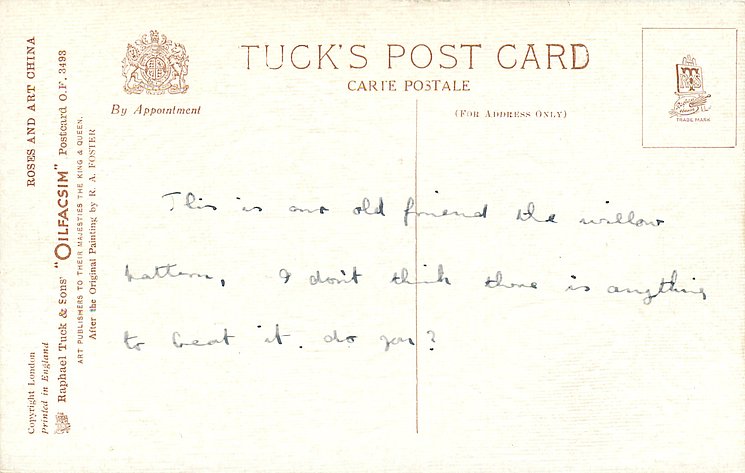 TUCK'S POST CARD
CARTE POSTALE
By Appointment
(FOR ADDRESS ONLY)
TRADE MARK
ROSES AND ART CHINA
Raphael Tuck & Sons' "OILFACSIM" Postcard O.F. 3493
ART PUBLISHERS TO THEIR MAJESTIES THE KING & QUEEN.
After the Original Painting by R. A. FOSTER
Copyright London
Printed in England
This is our old friend the willow
pattern, I don't think there is anything
to beat it. do you?